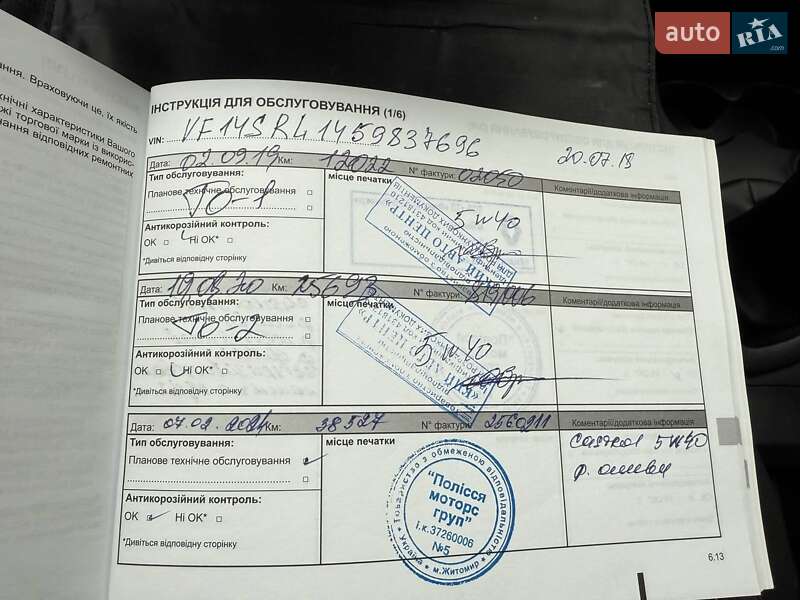 auto RIA .com
ання. Враховуючи це, їх якість
нічні характеристики Вашого
жі торгової марки із викорис-
нання відповідних ремонтних
ІНСТРУКЦІЯ ДЛЯ ОБСЛУГОВУВАННЯ (1/6)
VIN: VF14SRL1459837696
20.07.18
Дата: 02.09.19 Км: 12022 N° фактури: 02050
Тип обслуговування:
місце печатки
Коментарі/додаткова інформація
Планове технічне обслуговування
ТО-1
5w40
Антикорозійний контроль:
OK Ні OK*
*Дивіться відповідну сторінку
АВТО ЦЕНТР»
Дата: Км: 25693 N° фактури:
Тип обслуговування:
місце печатки
Коментарі/додаткова інформація
Планове технічне обслуговування
ТО-2
5w40
Антикорозійний контроль:
OK Ні OK*
*Дивіться відповідну сторінку
Дата: 07.02.2021 Км: 38527 N° фактури: 2560211
Тип обслуговування:
місце печатки
Коментарі/додаткова інформація
Планове технічне обслуговування
Castrol 5W40
Антикорозійний контроль:
OK Ні OK*
*Дивіться відповідну сторінку
Товариство з обмеженою відповідальністю
"Полісся
моторс
груп"
і.к.37260006
№5
Україна м.Житомир
6.13